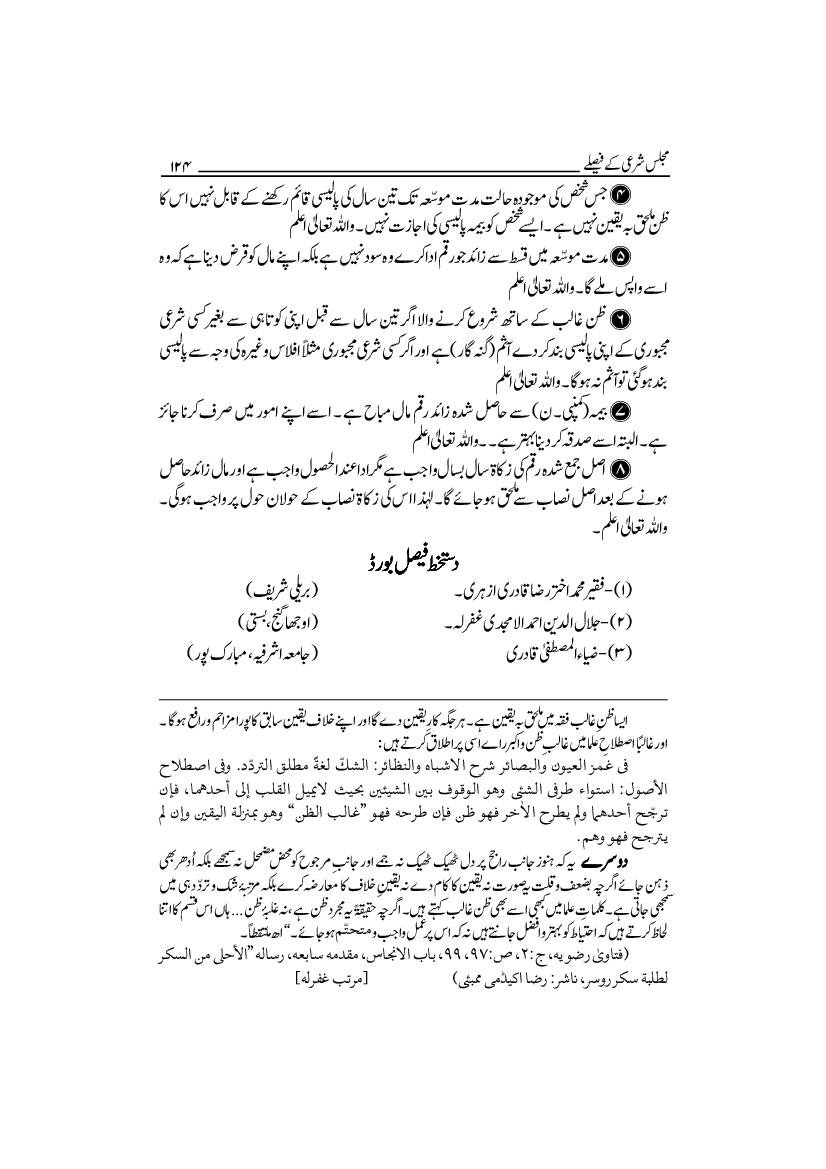 مجلس شرعی کے فیصلے ۱۲۴
۴ جس شخص کی موجودہ حالت مدت موسّعہ تک تین سال کی پالیسی قائم رکھنے کے قابل نہیں اس کا
ظن ملحق بہ یقین نہیں ہے۔ ایسے شخص کو بیمہ پالیسی کی اجازت نہیں۔ واللہ تعالیٰ اعلم
۵ مدت موسّعہ میں قسط سے زائد جو رقم ادا کرے وہ سود نہیں ہے بلکہ اپنے مال کو قرض دینا ہے کہ وہ
اسے واپس ملے گا۔ واللہ تعالیٰ اعلم
۶ ظن غالب کے ساتھ شروع کرنے والا اگر تین سال سے قبل اپنی کوتاہی سے بغیر کسی شرعی
مجبوری کے اپنی پالیسی بند کر دے آثم (گنہ گار) ہے اور اگر کسی شرعی مجبوری مثلاً افلاس وغیرہ کی وجہ سے پالیسی
بند ہوگئی تو آثم نہ ہوگا۔ واللہ تعالیٰ اعلم
۷ بیمہ (کمپنی۔ ن) سے حاصل شدہ زائد رقم مال مباح ہے۔ اسے اپنے امور میں صرف کرنا جائز
ہے۔ البتہ اسے صدقہ کر دینا بہتر ہے۔۔ واللہ تعالیٰ اعلم
۸ اصل جمع شدہ رقم کی زکاۃ سال بسال واجب ہے مگر ادا عند الحصول واجب ہے اور مال زائد حاصل
ہونے کے بعد اصل نصاب سے ملحق ہو جائے گا۔ لہٰذا اس کی زکاۃ نصاب کے حولان حول پر واجب ہوگی۔
واللہ تعالیٰ اعلم۔
دستخط فیصل بورڈ
(۱)-فقیر محمد اختر رضا قادری ازہری۔ (بریلی شریف)
(۲)-جلال الدین احمد الامجدی غفرلہ۔ (اوجھا گنج، بستی)
(۳)-ضیاء المصطفیٰ قادری (جامعہ اشرفیہ، مبارک پور)
ایسا ظنِ غالب فقہ میں ملحق بہ یقین ہے۔ ہر جگہ کارِ یقین دے گا اور اپنے خلاف یقین سابق کا پورا مزاحم و رافع ہوگا۔
اور غالبًا اصطلاحِ علما میں غالبِ ظن و اکبر راے اسی پر اطلاق کرتے ہیں:
فی غمز العیون والبصائر شرح الاشباہ والنظائر: الشكّ لغةً مطلق التردّد. وفی اصطلاح
الأصول: استواء طرفی الشئی وهو الوقوف بین الشیئین بحیث لایمیل القلب إلی أحدهما، فإن
ترجّح أحدهما ولم یطرح الأخر فهو ظن فإن طرحه فهو ”غالب الظن“ وهو بمنزلة الیقین وإن لم
یترجح فهو وهم.
دوسرے یہ کہ ہنوز جانبِ راجح پر دل ٹھیک ٹھیک نہ جمے اور جانبِ مرجوح کو محض مضمحل نہ سمجھے بلکہ اُدھر بھی
ذہن جائے اگرچہ بضعف و قلت یہ صورت نہ یقین کا کام دے نہ یقینِ خلاف کا معارضہ کرے بلکہ مرتبۂ شک و تردّد ہی میں
سمجھی جاتی ہے۔ کلماتِ علما میں کبھی اسے بھی ظن غالب کہتے ہیں۔ اگرچہ حقیقۃً یہ مجرد ظن ہے، نہ غلبۂ ظن... ہاں اس قسم کا اتنا
لحاظ کرتے ہیں کہ احتیاط کو بہتر و افضل جانتے ہیں نہ کہ اس پر عمل واجب و متحتّم ہو جائے۔“ اھ ملتقطاً۔
(فتاویٰ رضویہ، ج:۲، ص:۹۷، ۹۹، باب الانجاس، مقدمہ سابعہ، رسالہ ”الأحلی من السکر
لطلبة سکر روسر، ناشر: رضا اکیڈمی ممبئی) [مرتب غفرلہ]